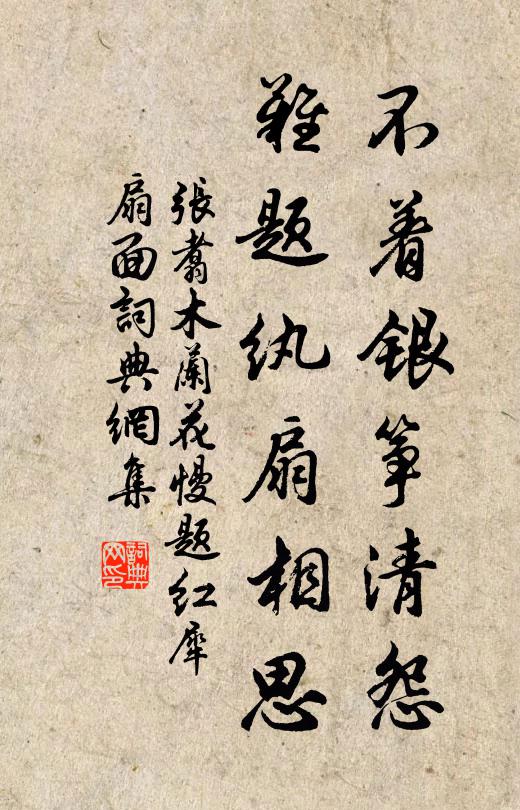 不着银筝清怨
難题纨扇相思
張翥木蘭花慢题红犀
扇面詞典網集
詞典网印